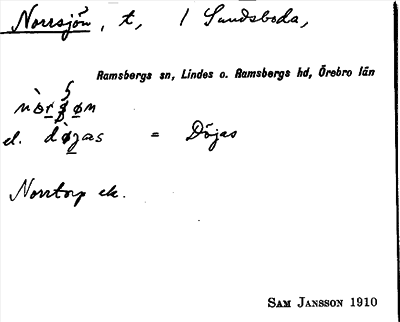 Norrsjön, t, / Sundsboda,
Ramsbergs sn, Lindes o. Ramsbergs hd, Örebro län
el. dø̀jas = Döjas
Norrtorp ek.
SAM JANSSON 1910